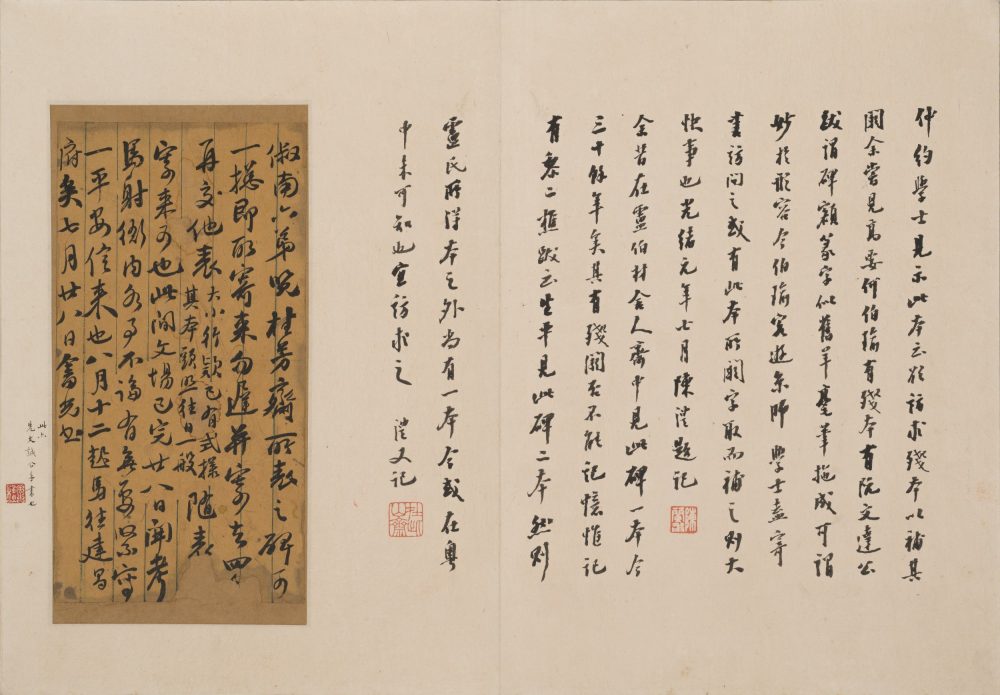 仲約學士見示此本云欲訪求殘本以補其
闕余嘗見高要何伯瑜有殘本有阮文達公
跋謂碑額篆字似舊羊毫筆拖成可謂
妙於形容今伯瑜客遊京師學士盍寄
書訪問之或有此本所闕字取而補之則大
快事也光緒元年七月陳澧題記
余昔在盧伯村舍人齋中見此碑一本今
三十餘年矣其有殘闕否不能記憶惟記
有黎二樵跋云生平見此碑二本然則
盧氏所得本之外尚有一本今或在粵
中未可知也宜訪求之 澧又記
南六弟覽桂芳齋所表之碑可
一搃即所寄來勿遲并寄去四
再交他表大小行欵已有式樣其本頭照往日一般隨表
寄來可也此間文場已完廿八日開考
馬射衙內各事不論有無要緊守
一平安信來也八月十二起馬往建昌
府矣七月廿八日書
先文誠公手書也